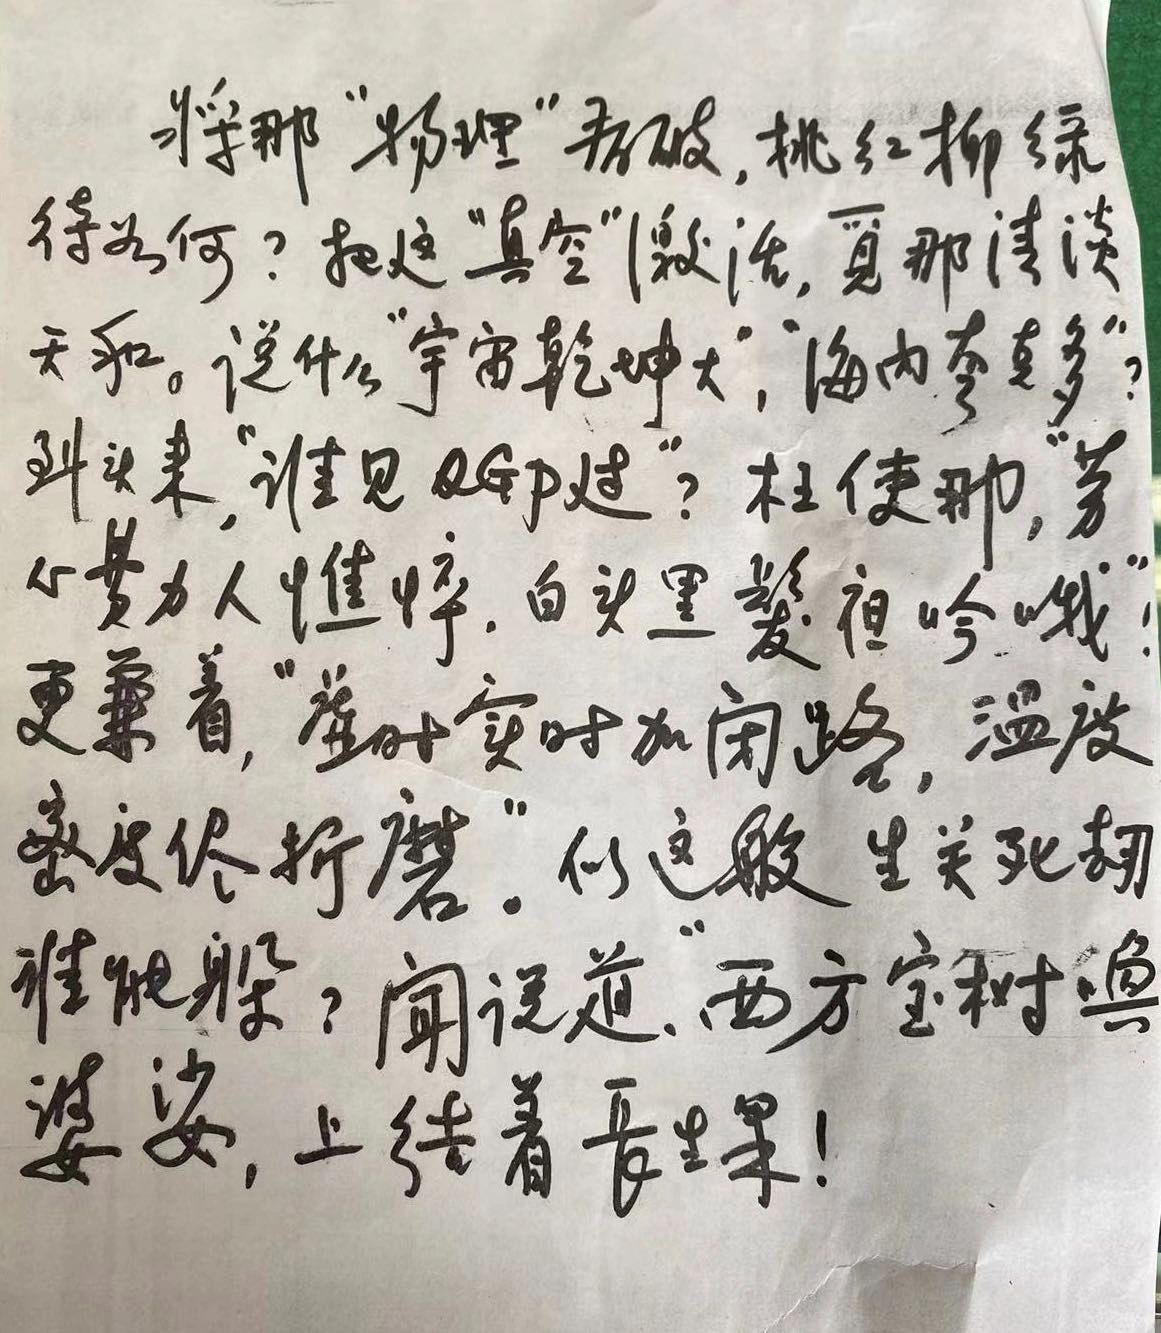 将那“物理”看破，桃红柳绿
待如何？把这“真空”激活，觅那清淡
天和。说什么“宇宙乾坤大”，“海内夸克多”？
到头来，“谁见QGP过”？枉使那，“劳
心费力人憔悴，白头黑发袒吟哦”！
更兼着，“虚时实时加闭路，温度
密度尽折磨”。似这般生关死劫
谁能躲？闻说道，“西方宝树唤
婆娑，上结着长生果！